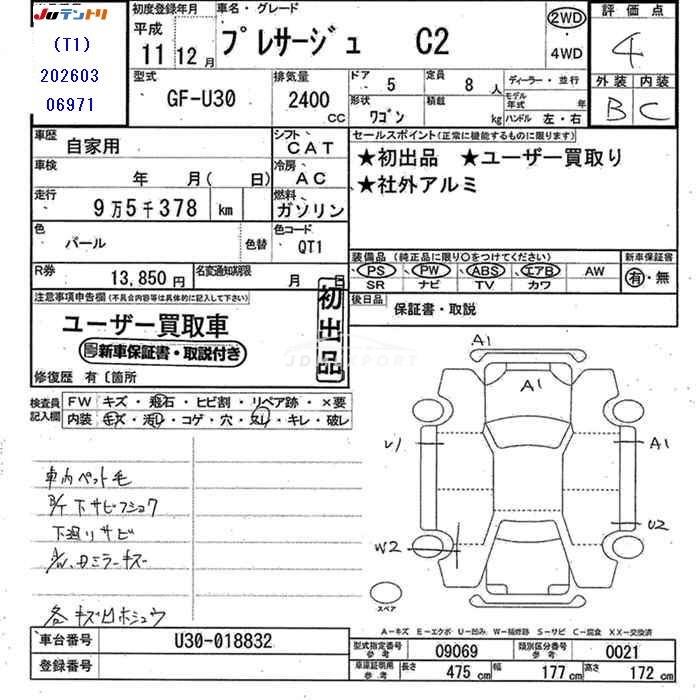 JUテントリ
(T1)
202603
06971
初度登録年月
平成
11年 12月
車名・グレード
プレサージュ C2
2WD
・
4WD
評価点
4
外装 内装
B C
型式
GF-U30
排気量
2400 CC
ドア 5
定員 8 人
形状 ワゴン
積載 kg
ディーラー・並行
モデル年式 年
ハンドル 左・右
車歴 自家用
シフト CAT
車検 年 月( 日)
冷房 AC
走行 9万5千378 km
燃料 ガソリン
色 パール
色替
色コード QT1
R券 13,850円
名変通知期限 月 日
セールスポイント(正常に機能するものに限ります)
★初出品 ★ユーザー買取り
★社外アルミ
装備品 (純正品に限り○をつけてください)
PS・PW・ABS・エアB・AW
SR ナビ TV カワ
新車保証書
有・無
後日品 保証書・取説
注意事項申告欄(不具合内容等は具体的に記入して下さい)
ユーザー買取車
新車保証書・取説付き
初出品
修復歴 有〔箇所
JDM EXPORT
検査員記入欄
FW キズ・飛石・ヒビ割・リペア跡・×要
内装 キズ・汚れ・コゲ・穴・スレ・キレ・破レ
車内ペット毛
下サビフショク
下廻りサビ
ミラーキズ
各キズ凹ホシュウ
A1
A1
U1
A1
U2
W2
スペア
A-キズ E-エクボ U-凹み W-補修跡 S-サビ C-腐食 XX-交換済
車台番号 U30-018832
登録番号
型式指定番号 参考 09069
類別区分番号 参考 0021
車庫証明用 参考 長さ 475 cm 幅 177 cm 高さ 172 cm